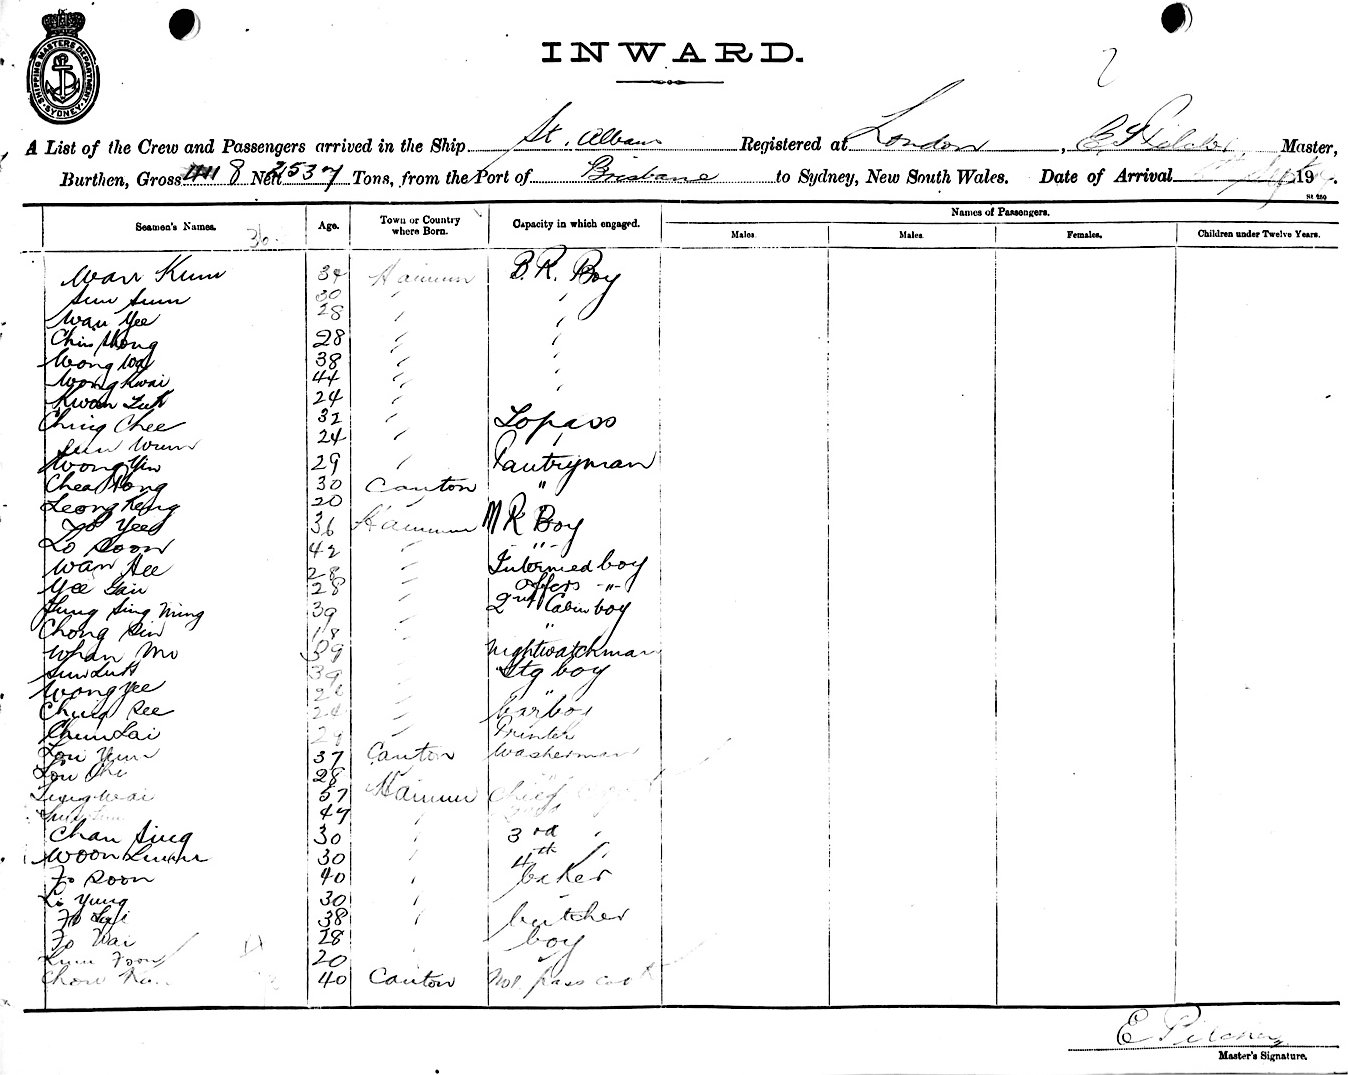 SHIPPING MASTERS DEPARTMENT SYDNEY
INWARD.
A List of the Crew and Passengers arrived in the Ship St. Albans Registered at London, E Pilcher Master,
Burthen, Gross 4118 Nett 2537 Tons, from the Port of Brisbane to Sydney, New South Wales. Date of Arrival 19 .
Seamen's Names. 36. Age. Town or Country where Born. Capacity in which engaged. Names of Passengers.
Males. Males. Females. Children under Twelve Years.
Wan Kum 34 Hainum B. R. Boy
Sun Sum 30 "
Wan Yee 28 " "
Chin Hong 28 "
Wong Wa 38 " "
Wong Kwai 44 " "
Kwan Luk 24 "
Ching Chee 32 " Lopass
Sun Wum 24 " "
Wong Yin 29 " Pantryman
Chea Hong 30 Canton "
Leong Keng 20 "
Fo Yee 36 Hainum M R Boy
Lo Soon 42 " "
Wan Hee 28 " Intermed boy
Yee Gan 28 " offers "
Fung Sing Ming 39 " 2nd Cabin boy
Chong Sin 18 " "
Whan Mo 39 " Nightwatchman
Sun Luk 39 " Stg boy
Wong Yee 26 " "
Ching See 24 " bar boy
Chun Lai 29 " Printer
Lou Yum 37 Canton Washerman
Lou Chi 28 "
Wai 57 Hainum Chief
47 "
Chan Sing 30 " 3rd "
Woon 30 " 4th "
Fo Soon 40 " baker
Li Yung 30 "
Fo 38 " butcher
Fo Wai 28 boy
Foon 20 "
Chow 40 Canton pass cook
E Pilcher
Master's Signature.